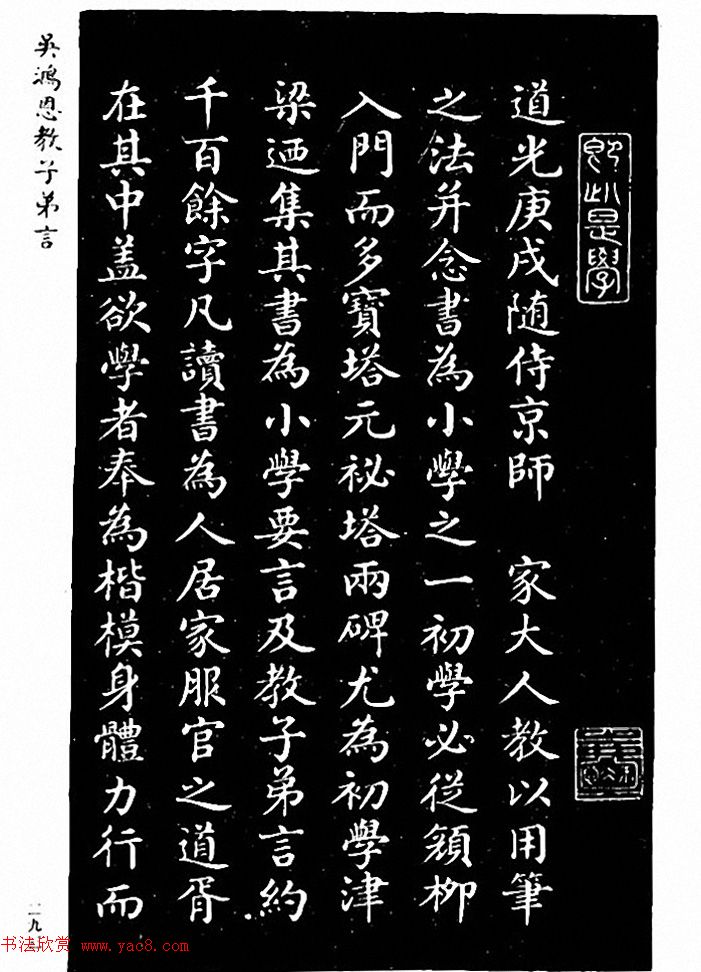 即此是學
道光庚戌随侍京師　家大人教以用筆
之法并念書為小學之一初學必從顏柳
入門而多寶塔元祕塔兩碑尤為初學津
梁迺集其書為小學要言及教子弟言約
千百餘字凡讀書為人居家服官之道胥
在其中盖欲學者奉為楷模身體力行而
吳鴻恩教子弟言
二九
书法欣赏 www.yac8.com